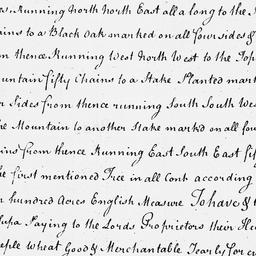 Running North North East all a long to the
ains to a Black Oak marked on all four sides &
om thence Running West North West to the Top
untain fifty Chains to a Stake Planted mark
r Sides from thence running South South Wes
he Mountain to another Stake markd on all fou
ains from thence Running East South East fif
the first mentioned Tree in all Cont according
n hundred Acres English Measure To have &
Paying to the Lords Proprietors their He
eple wheat Good & Merchantable Yearly for ev